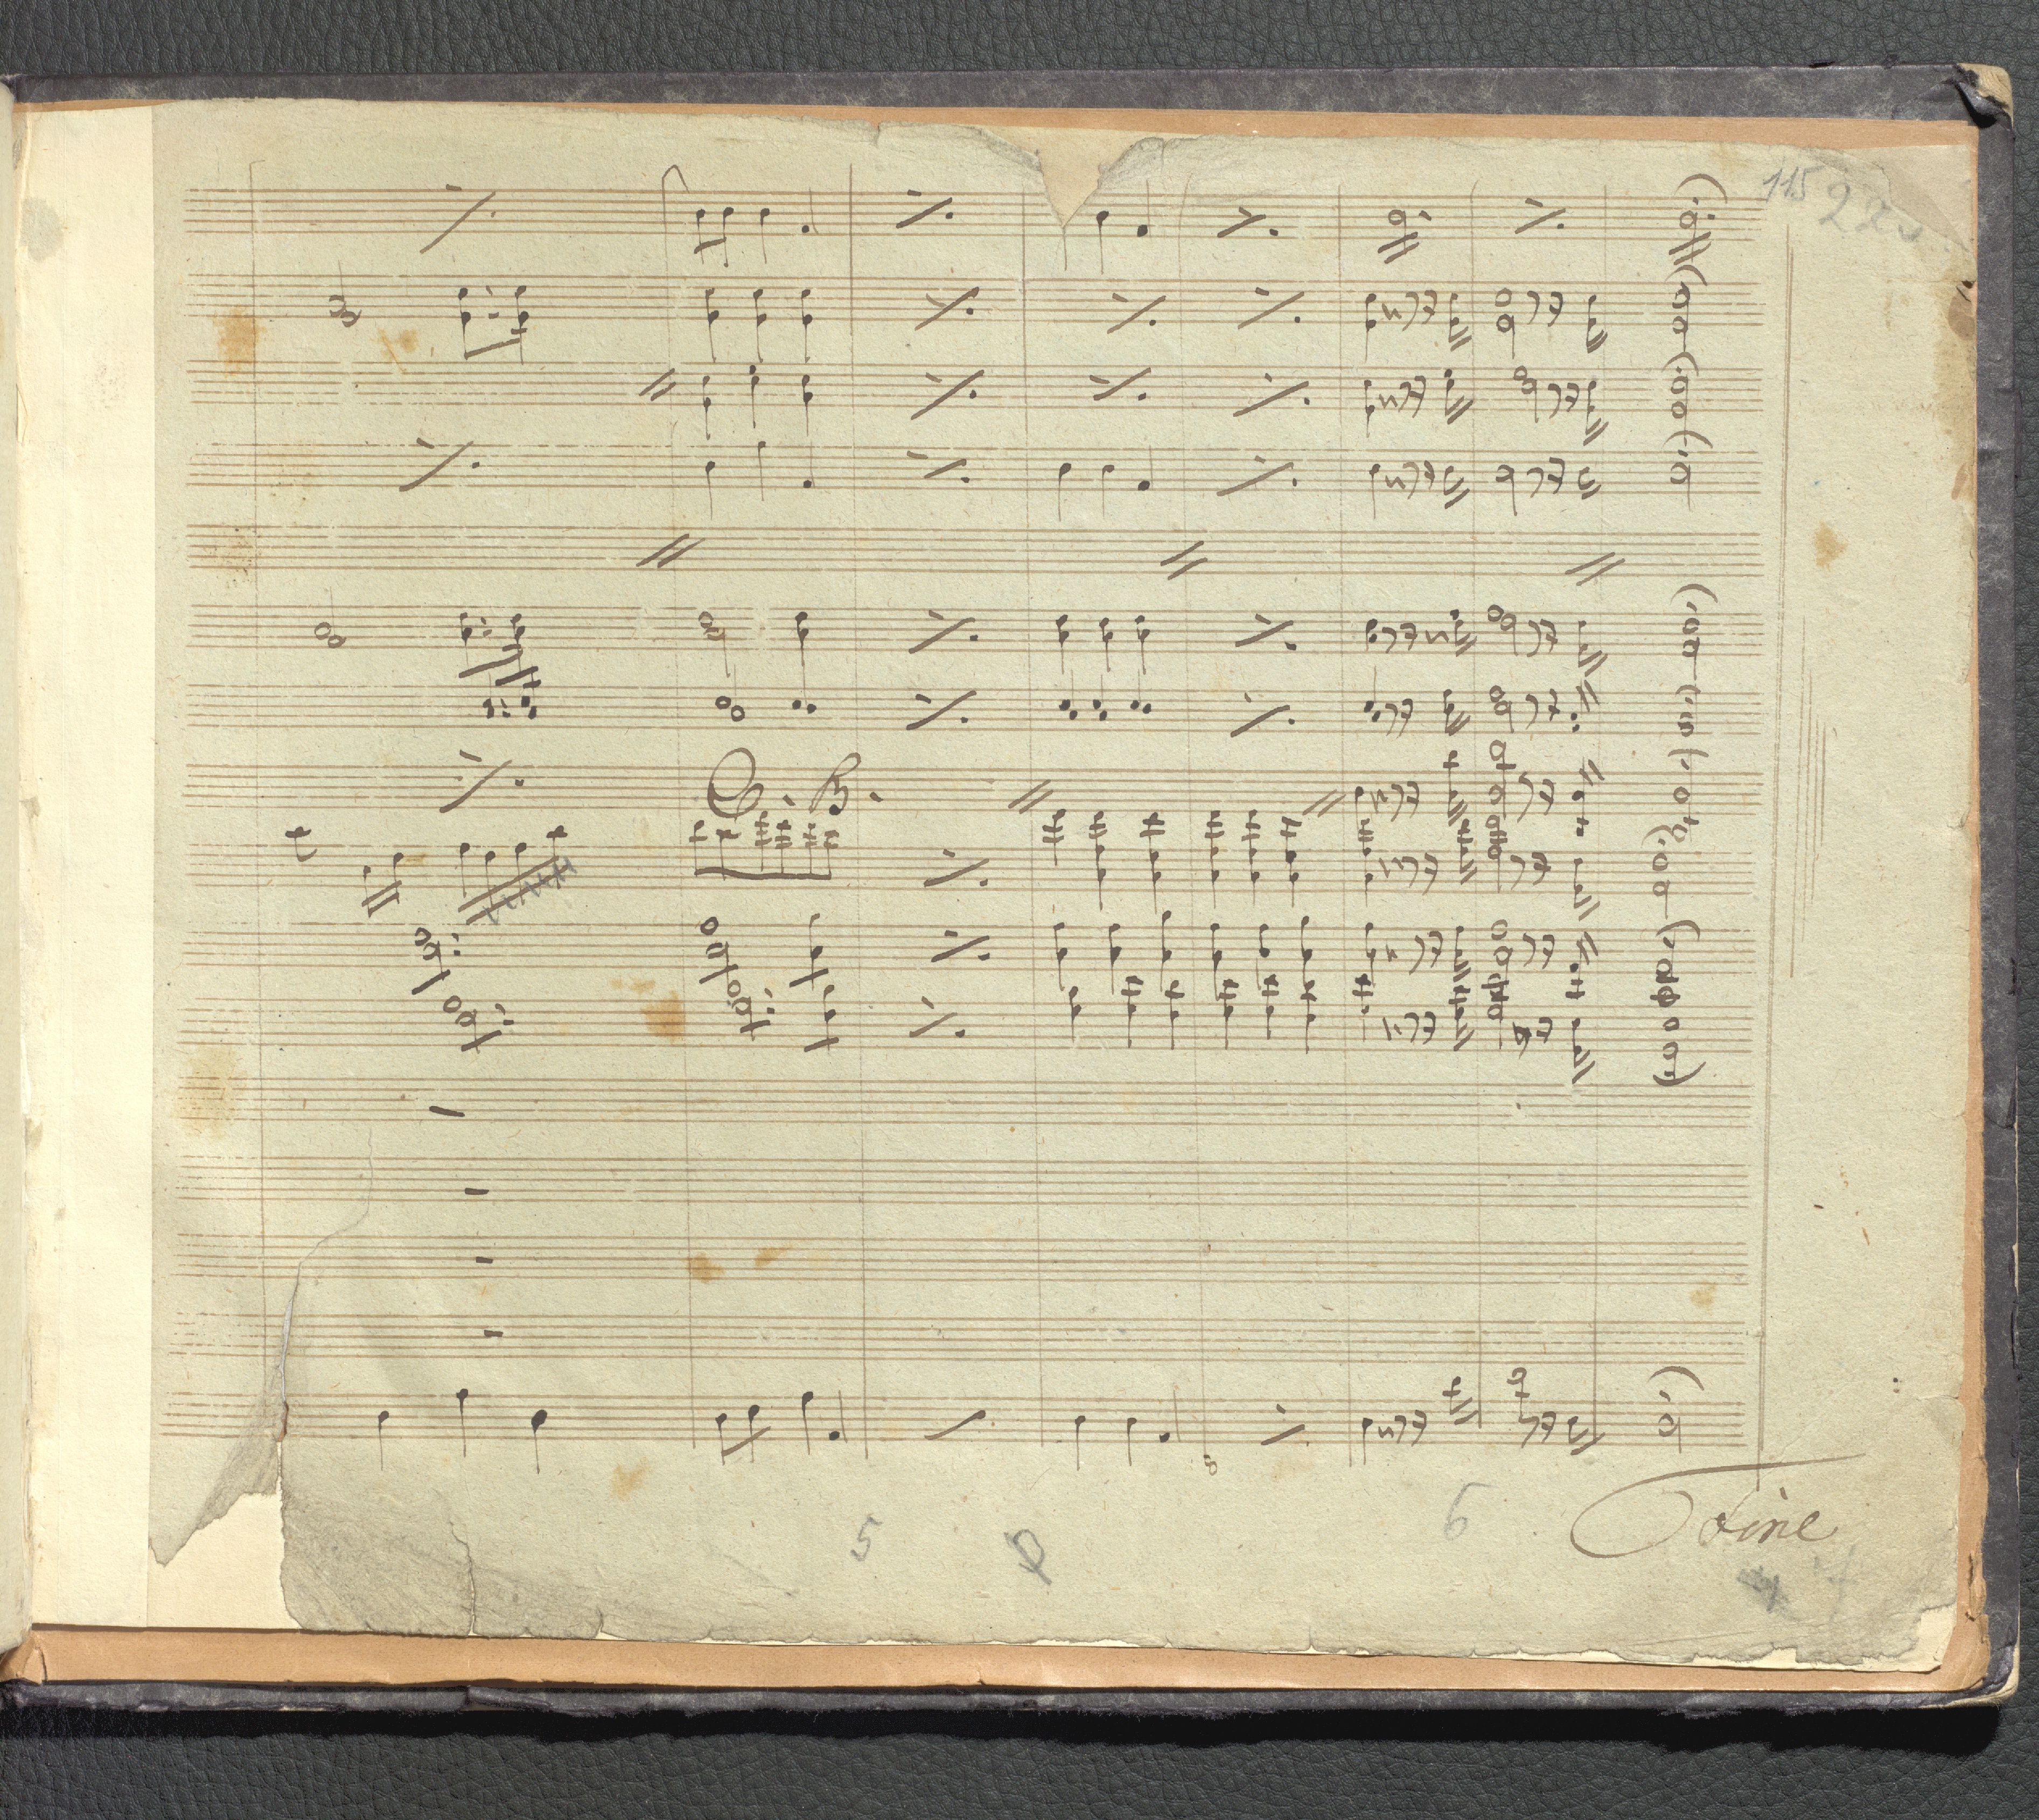 115
C. B.
5
6
Fine